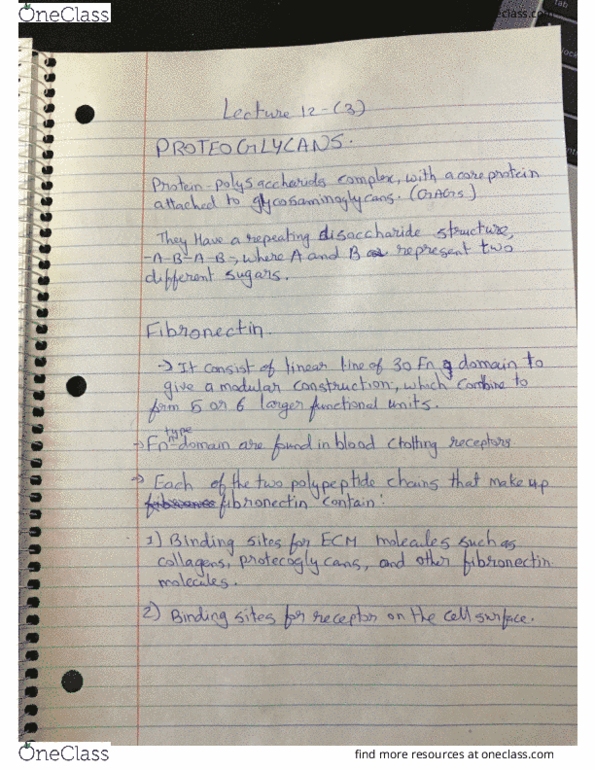 OneClass
oneclass.com
Tab
Lecture 12-(3)
PROTEOGLYCANS.
Protein-polysaccharide complex, with a core protein
attached to glycosaminoglycans. (GAGs)
They Have a repeating disaccharide structure,
-A-B-A-B-, where A and B represent two
different sugars.
Fibronectin.
→ It consist of linear line of 30 Fn g domain to
give a modular construction, which combine to
form 5 or 6 larger functional units.
type
→ Fn-domain are found in blood clotting receptors
→ Each of the two polypeptide chains that make up
fibronectin contain:
1) Binding sites for ECM molecules such as
collagens, protecoglycans, and other fibronectin
molecules.
2) Binding sites for receptor on the cell surface.
OneClass
find more resources at oneclass.com